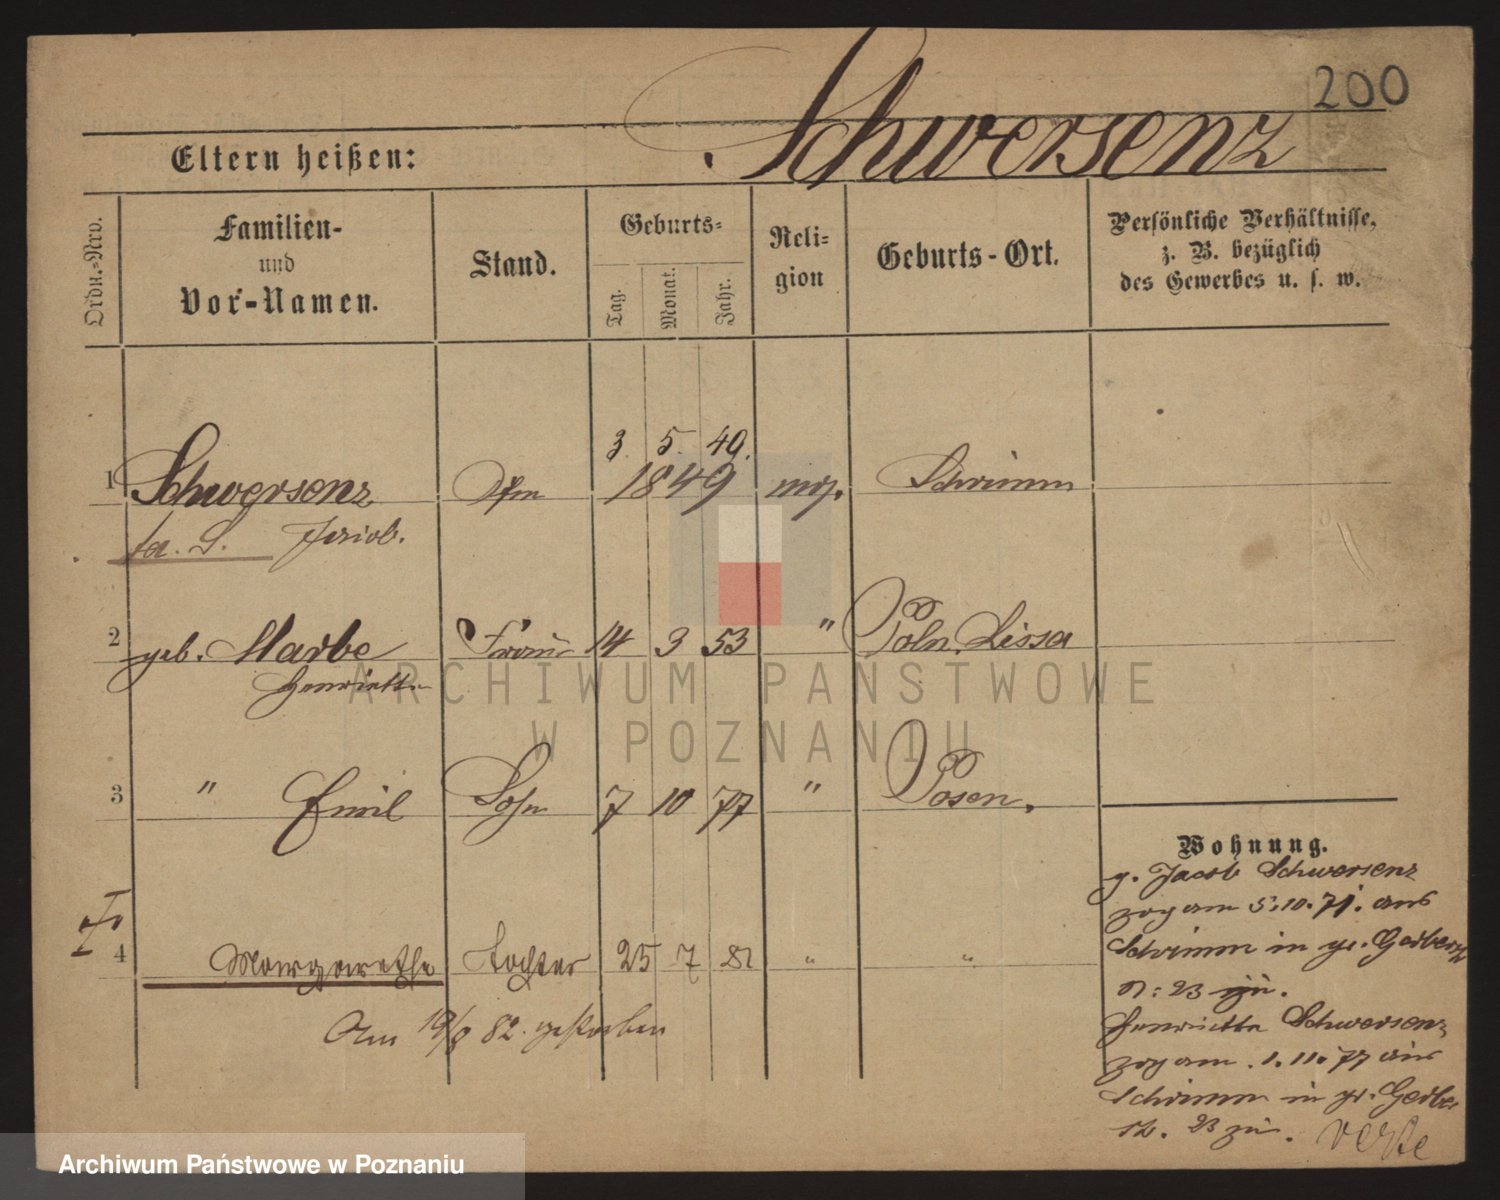 200
Schwersenz
Eltern heißen:
Ordn.-Nro.
Familien-
und
Vor-Namen.
Stand.
Geburts-
Tag.
Monat.
Jahr.
Reli-
gion
Geburts-Ort.
Persönliche Verhältnisse,
z. B. bezüglich
des Gewerbes u. s. w.
3. 5. 49.
1 Schwersenz 1849 mos. Schrimm
Jacob.
2 geb. Marbe Frau 14 3 53 " Poln. Lissa
Henriette
3 " Emil Sohn 7 10 77 " Posen.
4 Margarethe Tochter 25 7 81 " "
Am 19/8 82. gestorben
Wohnung.
g. Jacob Schwersenz
zog am 5.10.71. aus
Schrimm in gr. Gerberst
N: 23 zu.
Henriette Schwersenz
zog am 1.11.77 aus
Schrimm in gr. Gerber
st. 23 zu. verte
ARCHIWUM PAŃSTWOWE
W POZNANIU
Archiwum Państwowe w Poznaniu